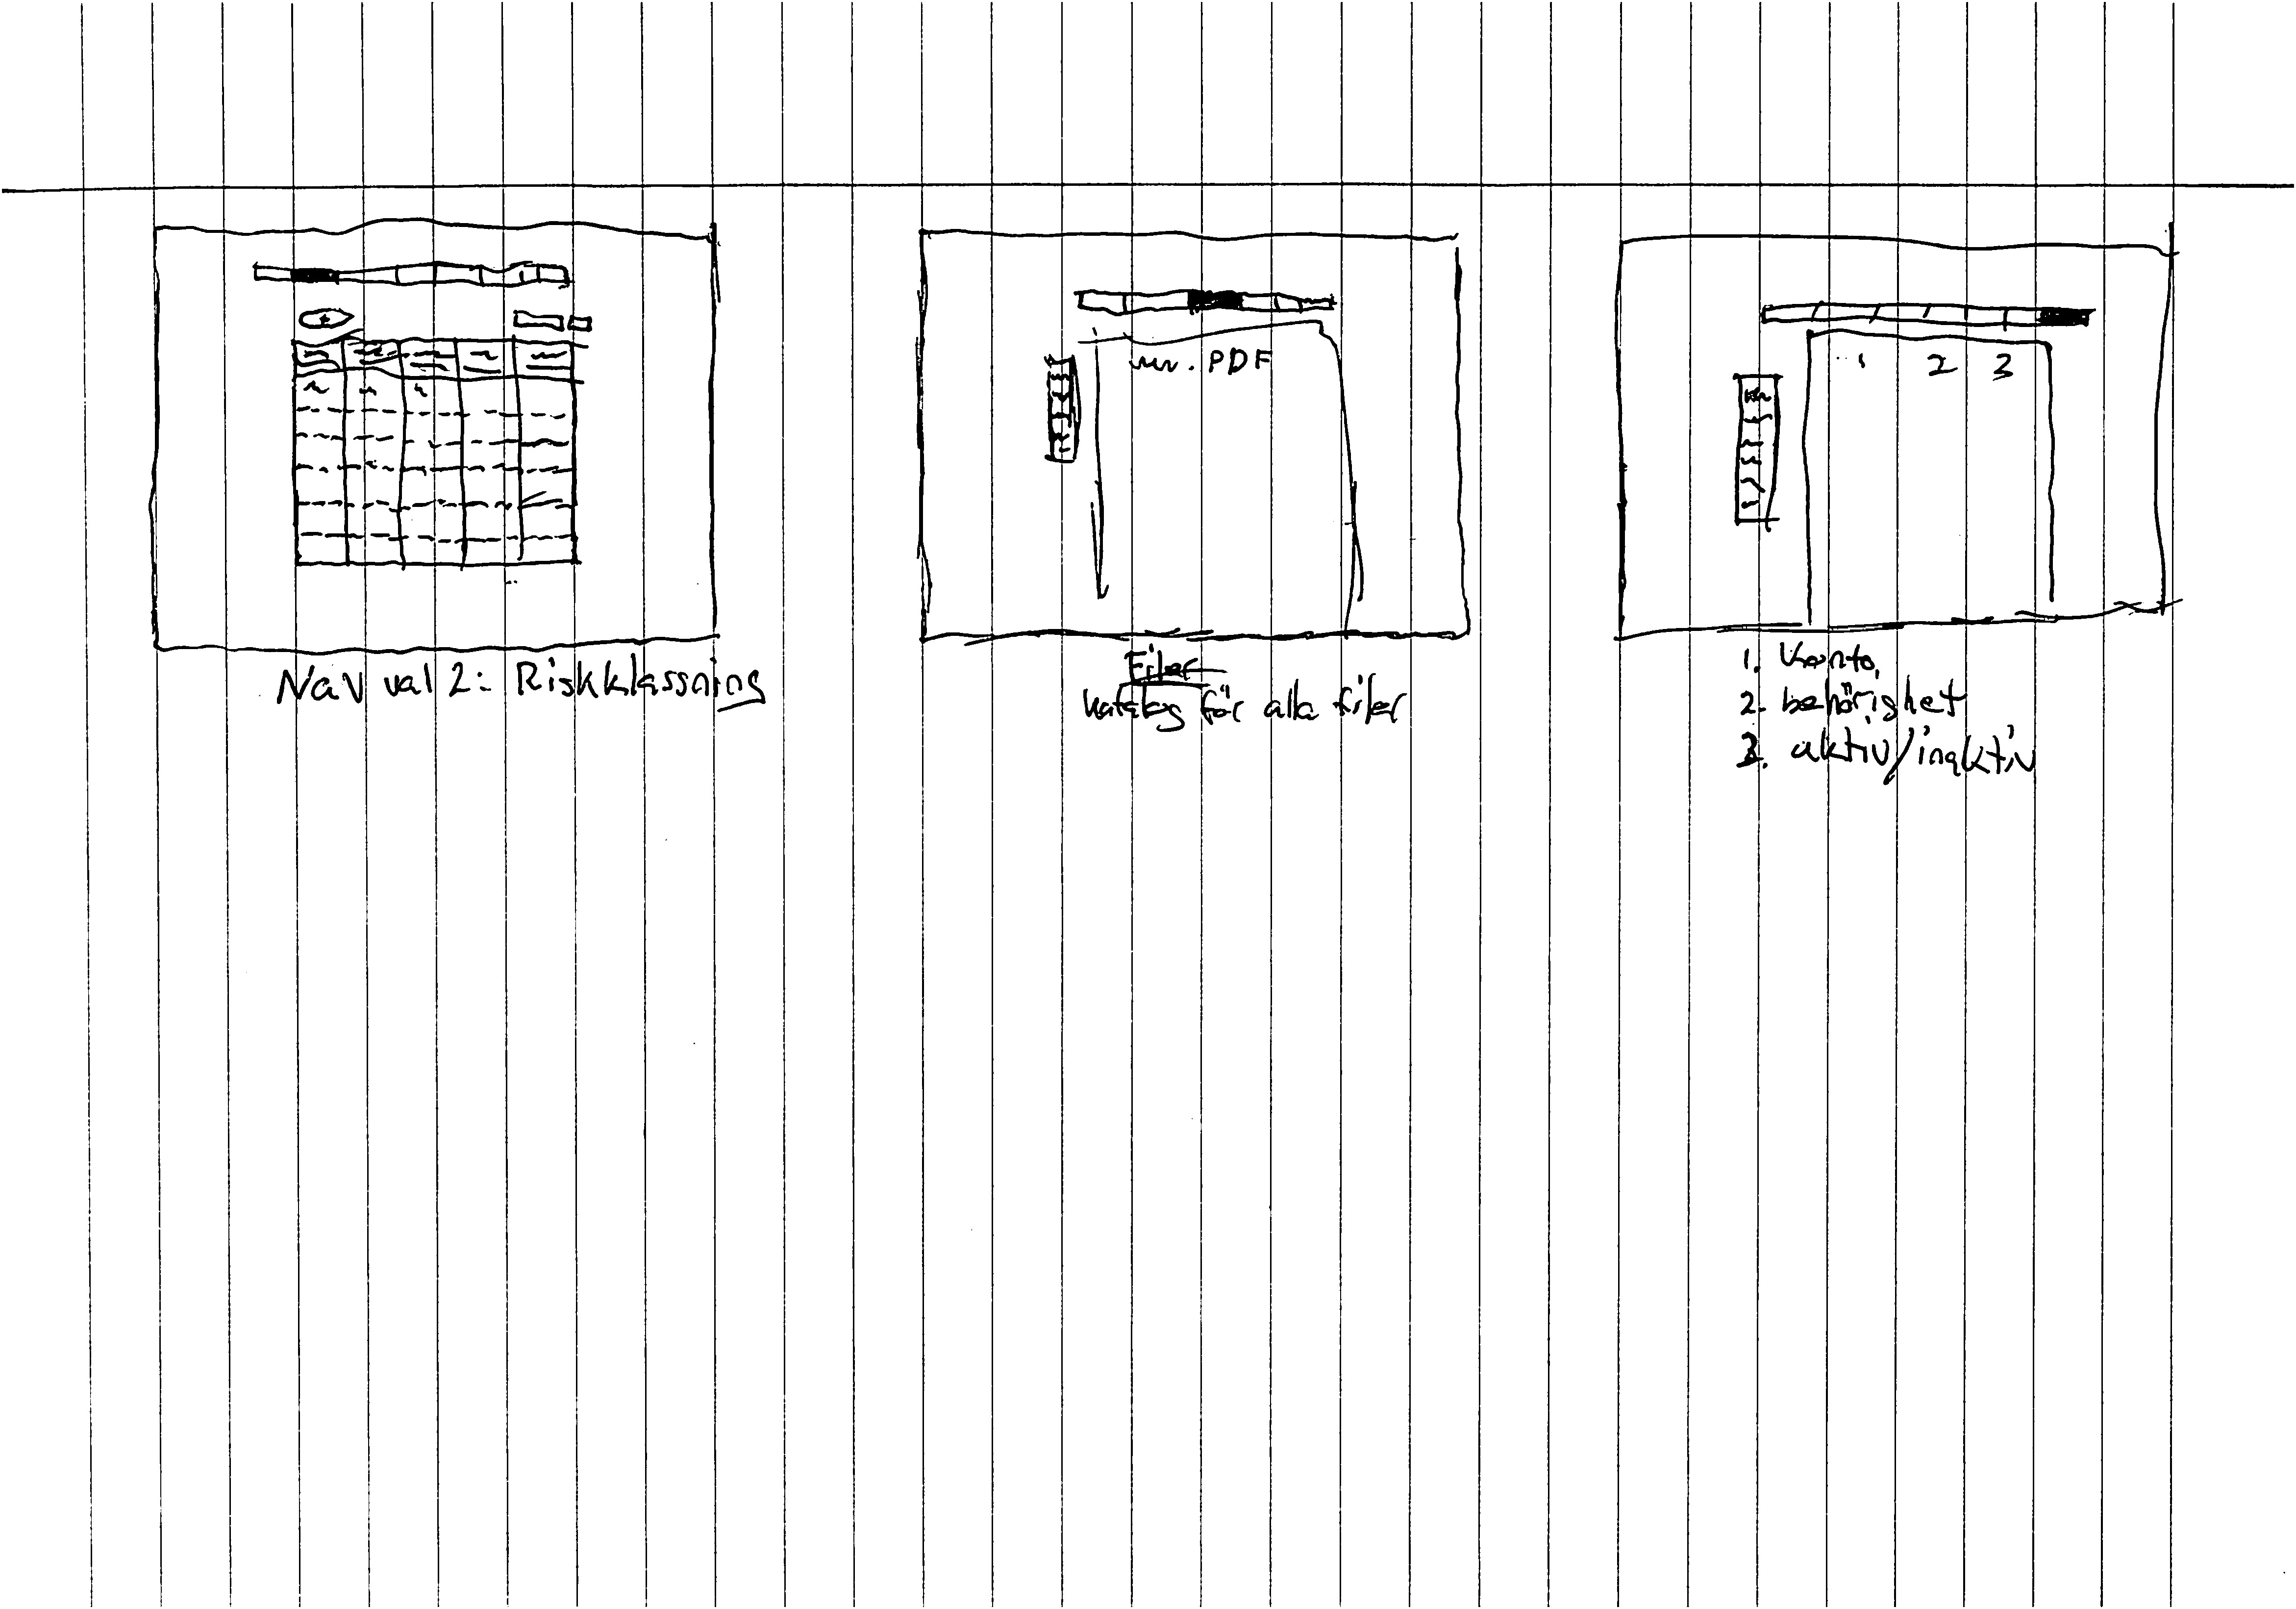 .PDF
1 2 3
Nav val 2: Riskklassning
Filer
katalog för alla filer
1. Konto
2. behörighet
3. aktiv/inaktiv